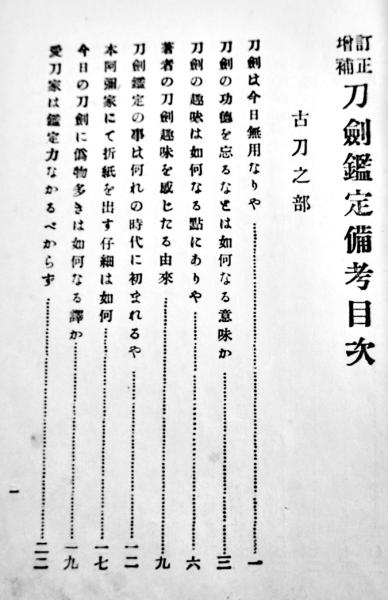 訂正增補 刀劍鑑定備考目次
古刀之部
刀劍は今日無用なりや……一
刀劍の功德を忘るなとは如何なる意味か……三
刀劍の趣味は如何なる點にありや……六
著者の刀劍趣味を感じたる由來……九
刀劍鑑定の事は何れの時代に初まれるや……一二
本阿彌家にて折紙を出す仔細は如何……一七
今日の刀劍に僞物多きは如何なる譯か……一九
愛刀家は鑑定力なかるべからず……二二
一